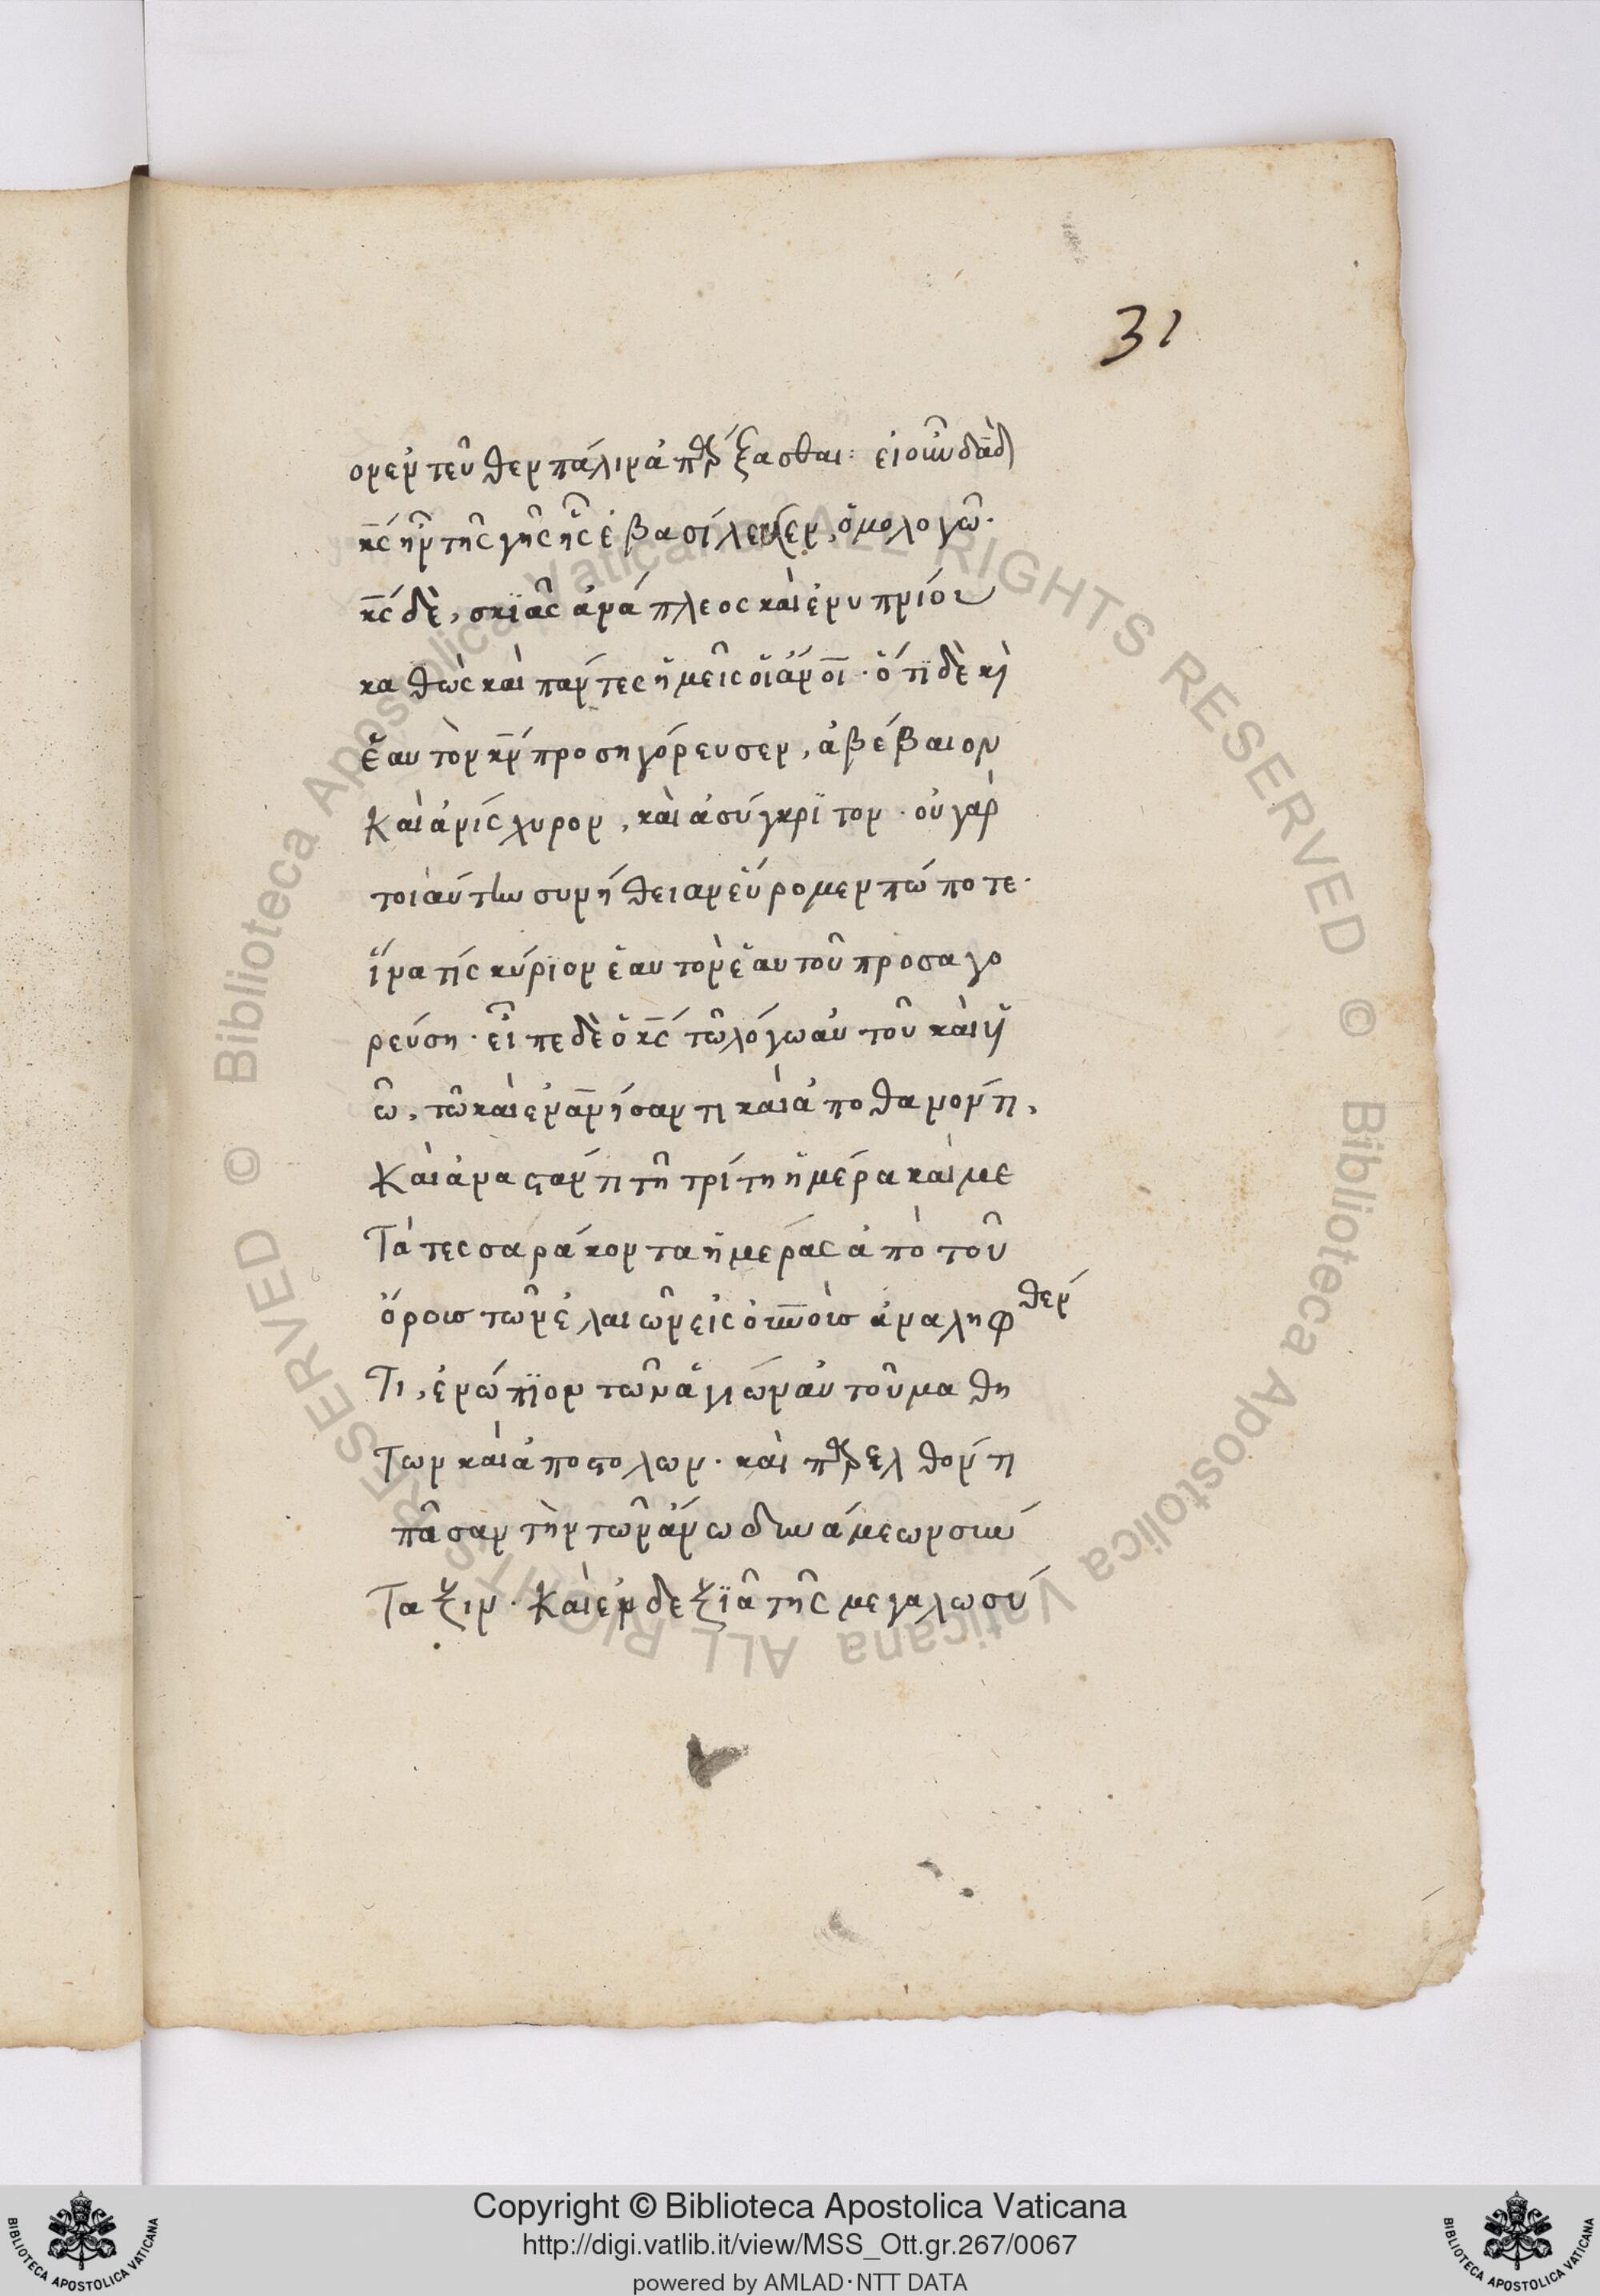 31
ον ἐντεῦθεν πάλιν ἀπάρξασθαι· εἰ οὖν δα̅δ
κ̅ς ἦν τῆς γῆς ἧς ἐβασίλευσεν, ὁμολογῶ·
κ̅ς δὲ, σκϊᾶς ἀνάπλεος καὶ ἐνυπνίου
καθὼς καὶ πάντες ἡμεῖς οἱ ἄν̅οι· ὅτϊ δὲ κὶ
ἑαυτὸν κ̅ν προσηγόρευσεν, ἀβέβαιον
Καὶ ἀνίσχυρον, καὶ ἀσύγκρϊτον· οὐ γὰρ
τοιαύτην συνήθειαν εὕρομεν πώποτε·
ἵνα τίς κύριον ἑαυτὸν ἑαυτοῦ προσαγο
ρεύση· εἶπε δὲ ὁ κ̅ς τῶ λόγω αὐτοῦ καὶ υ̅
ω̅, τῶ καὶ ἐνα̅νήσαντι καὶ ἀποθανόντι,
Καὶ ἀναστάντι τῆ τρίτη ἡμέρα καὶ με
Τὰ τεσσαράκοντα ἡμέρας ἀπὸ τοῦ
ὄρους τῶν ἐλαιῶν εἰς ου̅νοὺς ἀναληφθέν
Τι, ἐνώπϊον τῶν ἁγίων αὐτοῦ μαθη
Των καὶ ἀποστόλων· καὶ παρελθόντι
πᾶσαν τὴν τῶν ἄνω δυνάμεων σύν
Ταξιν· Καὶ ἐν δεξϊᾶ τῆς μεγαλωσύ
Copyright © Biblioteca Apostolica Vaticana
http://digi.vatlib.it/view/MSS_Ott.gr.267/0067
powered by AMLAD·NTT DATA
BIBLIOTECA APOSTOLICA VATICANA
BIBLIOTECA APOSTOLICA VATICANA
© Biblioteca Apostolica Vaticana ALL RIGHTS RESERVED © Biblioteca Apostolica Vaticana ALL RIGHTS RESERVED